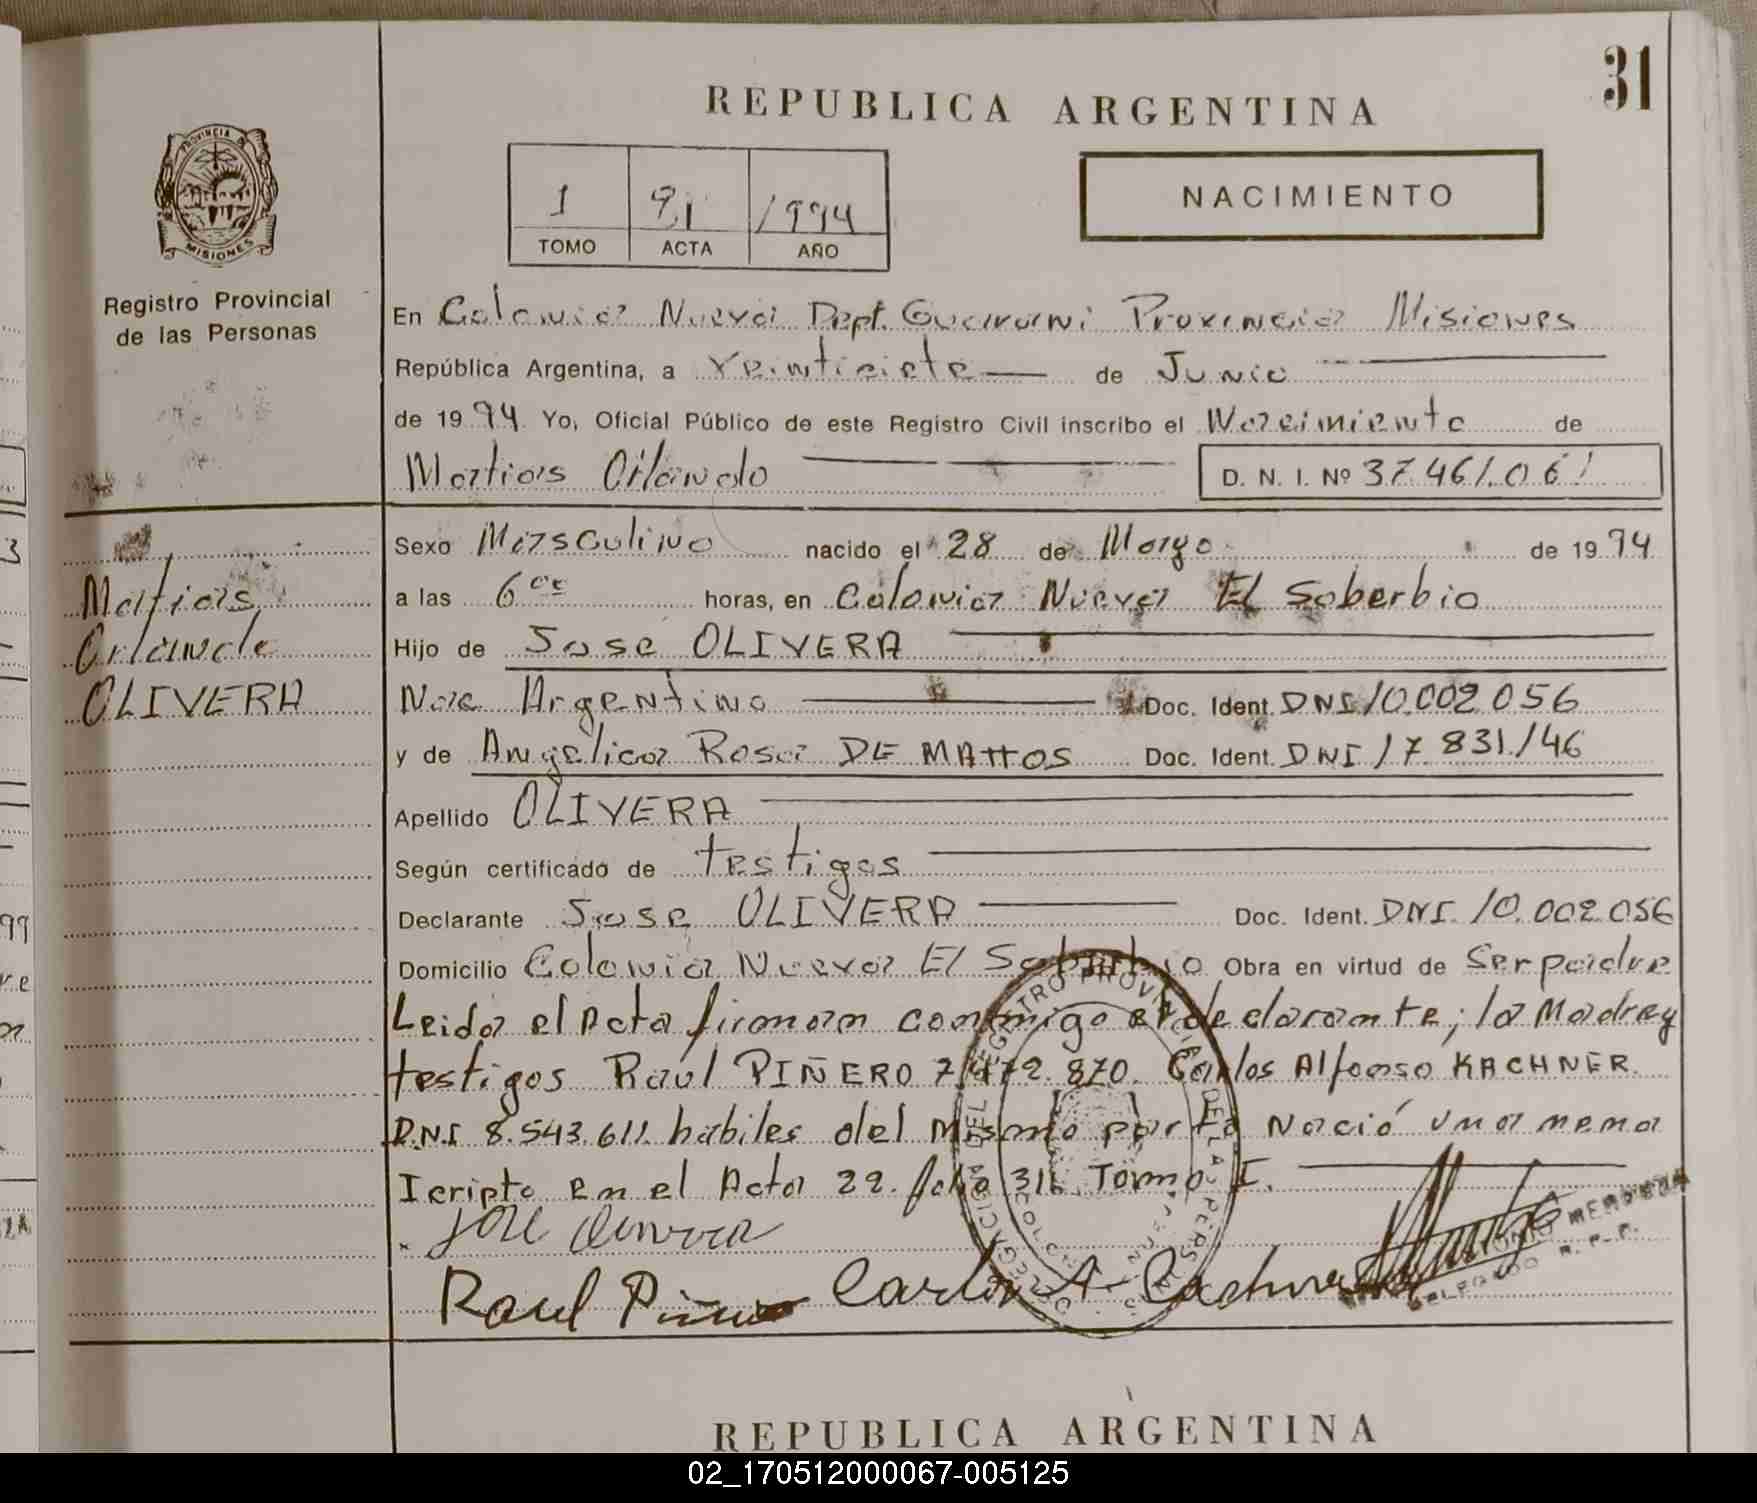 31
REPUBLICA ARGENTINA
PROVINCIA DE
MISIONES
Registro Provincial
de las Personas
1 91 1994
TOMO ACTA AÑO
NACIMIENTO
En Colonia Nueva Dept. Guarani Provincia Misiones
República Argentina, a Veintisiete de Junio
de 1994 Yo, Oficial Público de este Registro Civil inscribo el Nacimiento de
Matias Orlando D. N. I. Nº 37.461.061
Sexo Masculino nacido el 28 de Marzo de 1994
a las 6 horas, en Colonia Nueva El Soberbio
Matias
Orlando
OLIVERA
Hijo de Jose OLIVERA
Nac Argentino Doc. Ident. DNI 10.002.056
y de Angelica Rosa DE MATTOS Doc. Ident. DNI 17.831.146
Apellido OLIVERA
Según certificado de testigos
Declarante Jose OLIVERA Doc. Ident. DNI. 10.002.056
Domicilio Colonia Nueva El Soberbio Obra en virtud de Ser padre
Leida el Acta firman conmigo el declarante; la Madre y
testigos Raul PIÑERO 7.472.870. Carlos Alfonso KACHNER.
D.N.I 8.543.611. habiles del Mismo parto Nació una nena
Icripto en el Acta 22. folio 31. Tomo I.
Jose Olivera
Raul Piñero Carlos A. Cachner
DELEGADO R. P. P.
REPUBLICA ARGENTINA
02_170512000067-005125